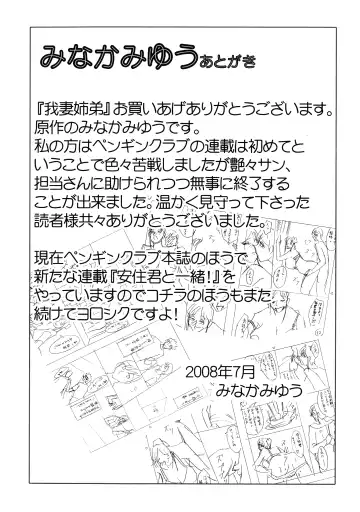 みなかみゆうあとがき
『我妻姉弟』お買いあげありがとうございます。
原作のみなかみゆうです。
私の方はペンギンクラブの連載は初めてと
いうことで色々苦戦しましたが艶々サン、
担当さんに助けられつつ無事に終了する
ことが出来ました。温かく見守って下さった
読者様共々ありがとうございました。
現在ペンギンクラブ本誌のほうで
新たな連載『安住君と一緒!』を
やっていますのでコチラのほうもまた
続けてヨロシクですよ!
2008年7月
みなかみゆう